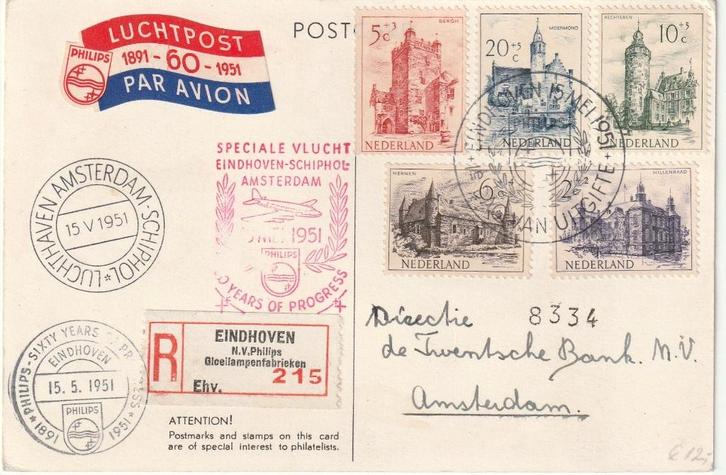 LUCHTPOST
PHILIPS
1891 - 60 - 1951
PAR AVION
POSTC
5+3 c
BERGH
NEDERLAND
20+5 c
MOERMOND
NEDERLAND
10+5 c
RECHTEREN
NEDERLAND
HERNEN
6
NEDERLAND
2
HILLENRAAD
NEDERLAND
EINDHOVEN 15 MEI 1951
VAN UITGIFTE
SPECIALE VLUCHT
EINDHOVEN-SCHIPHOL
AMSTERDAM
MEI 1951
PHILIPS
YEARS OF PROGRESS
LUCHTHAVEN AMSTERDAM-SCHIPHOL
15 V 1951
R
EINDHOVEN
N.V. Philips
Gloeilampenfabrieken
215
Ehv.
PHILIPS-SIXTY YEARS
1891
1951
EINDHOVEN
15. 5. 1951
PHILIPS
ATTENTION!
Postmarks and stamps on this card
are of special interest to philatelists.
8334
Directie
de Twentsche Bank. N.V.
Amsterdam.
€ 12,-